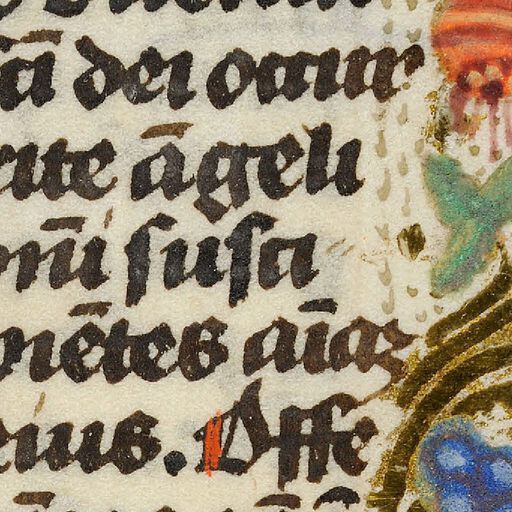 c̄i dei occur
rite āgeli
om̄i susci
piētes aīaꝫ
eius. Offe